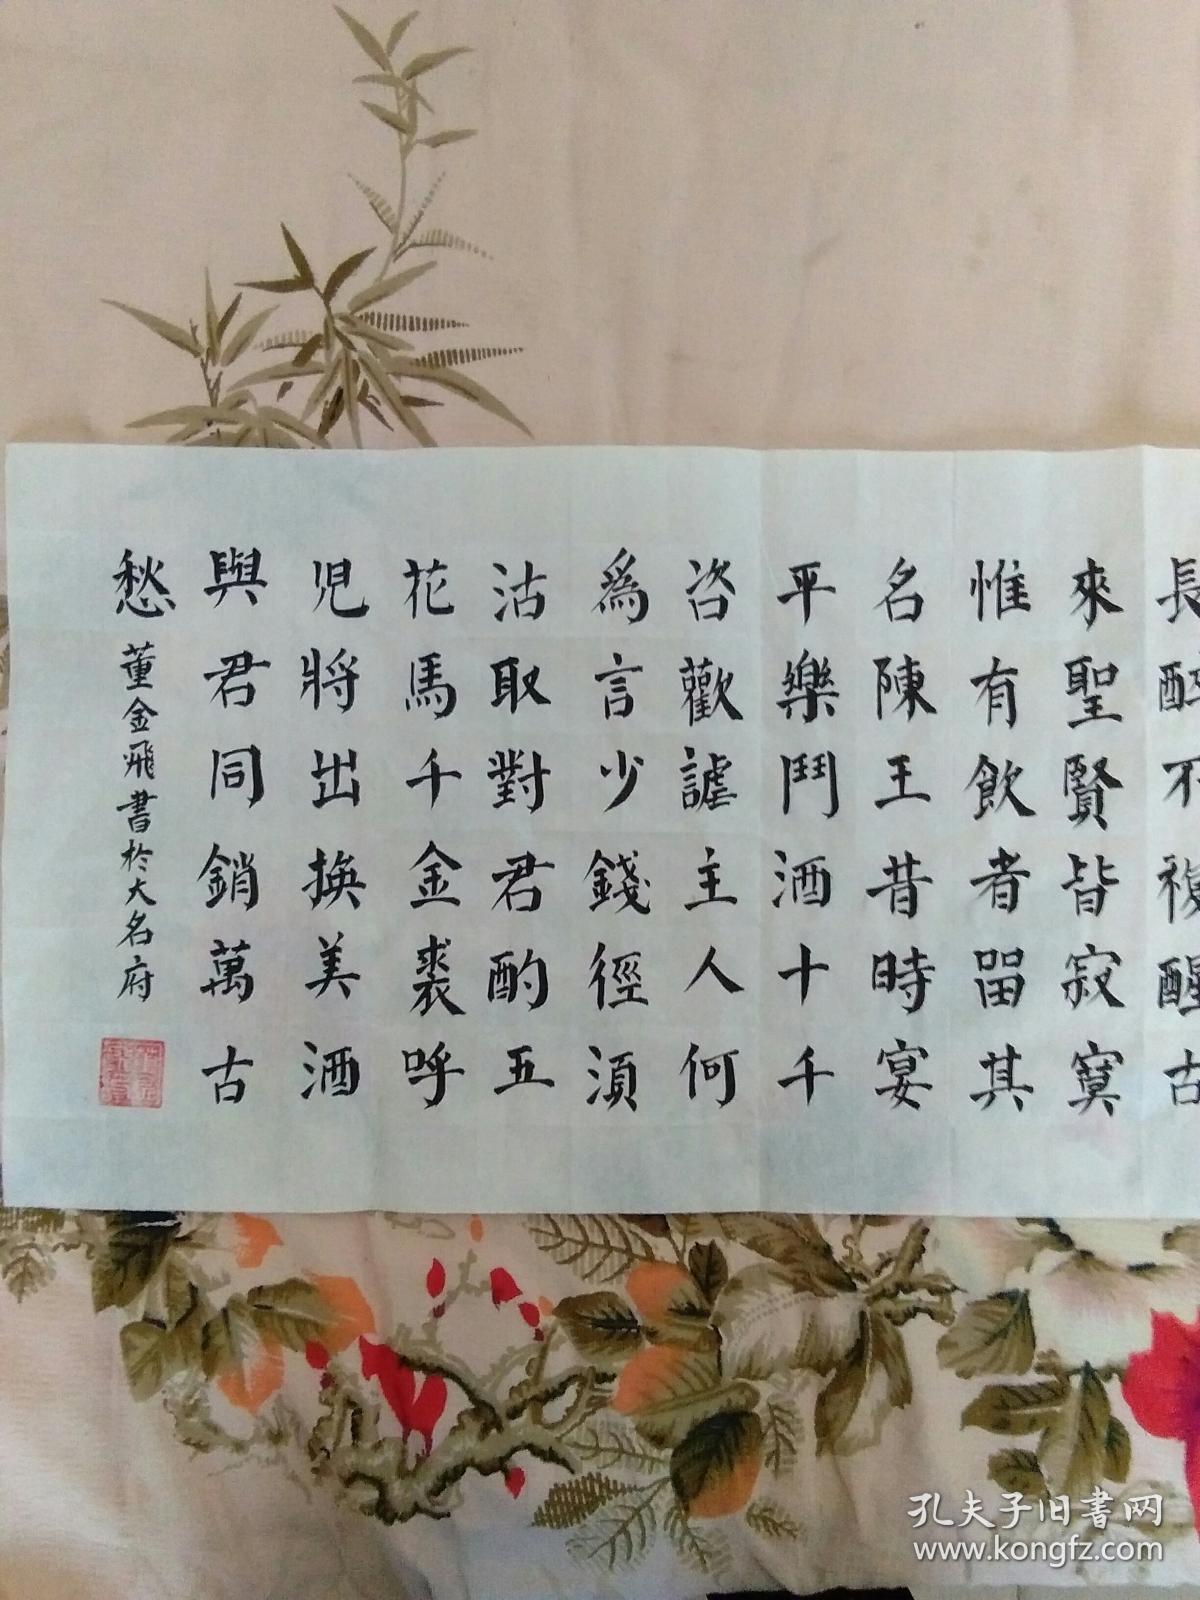 長醉不復醒古
來聖賢皆寂寞
惟有飲者留其
名陳王昔時宴
平樂鬥酒十千
咨歡謔主人何
為言少錢徑須
沽取對君酌五
花馬千金裘呼
児將出換美酒
與君同銷萬古
愁
董金飛書於大名府
孔夫子旧书网
www.kongfz.com